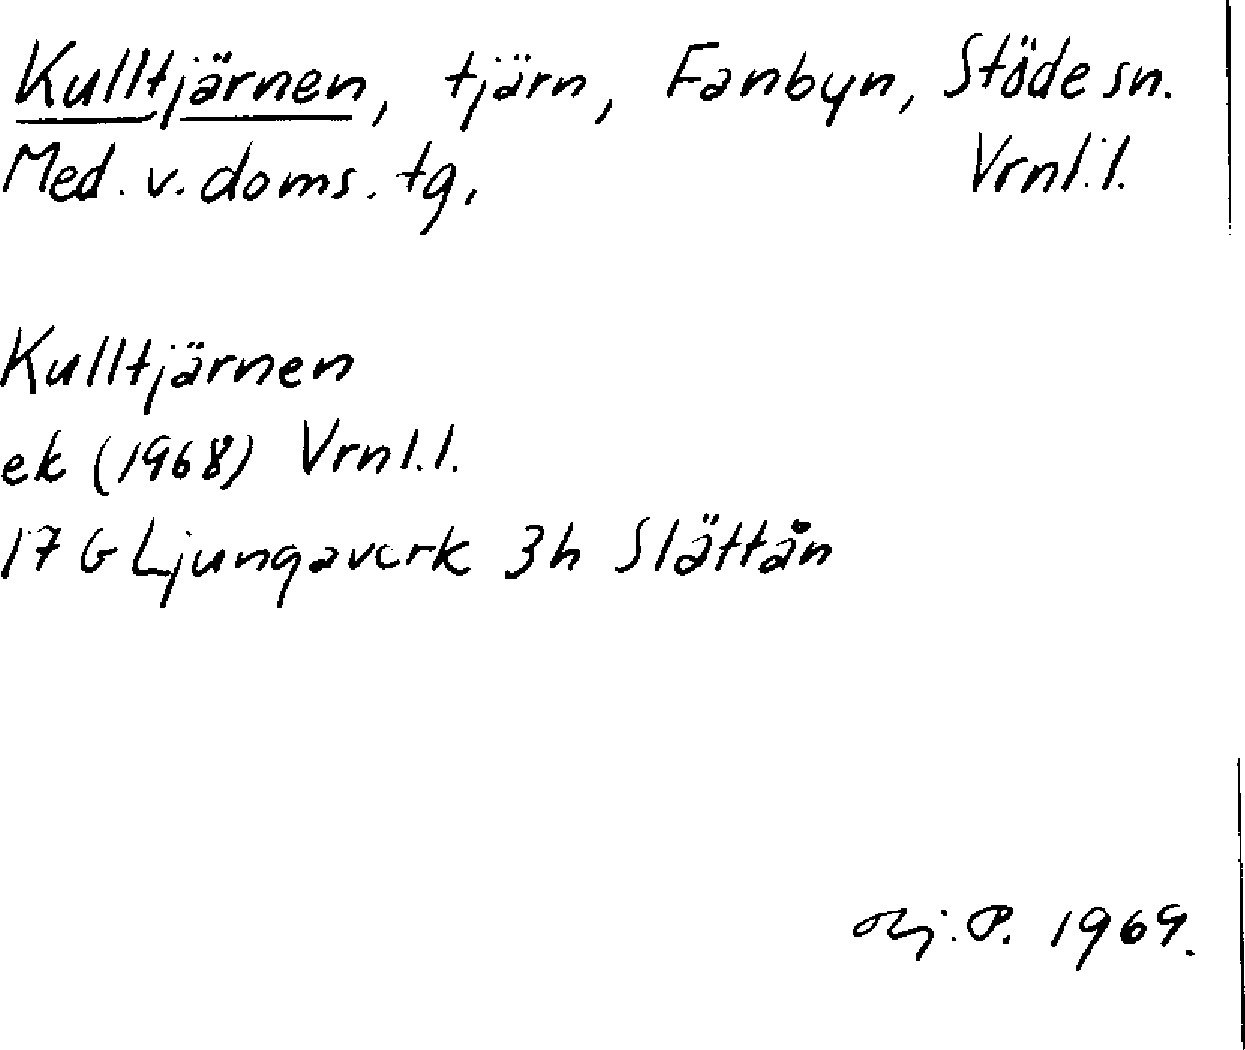 Kulltjärnen, tjärn, Fanbyn, Stöde sn.
Med. v. doms. tg. Vrnl. l.
Kulltjärnen
ek (1968) Vrnl. l.
17 G Ljungaverk 3h Slättån
P. 1969.